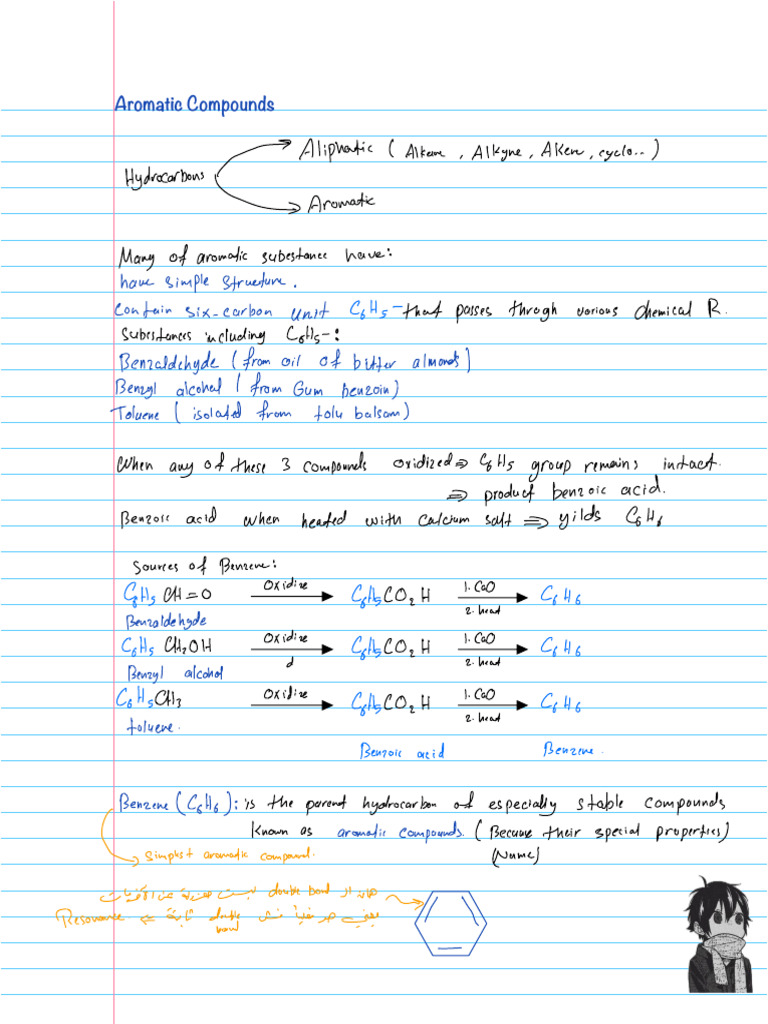 Aromatic Compounds
Aliphatic ( Alkane , Alkyne , Akene , cyclo.. )
Hydrocarbons
Aromatic
Many of aromatic substance have:
have simple structure.
Contain six-carbon unit C6H5- that passes through various chemical R.
Substances including C6H5-:
Benzaldehyde (from oil of bitter almonds)
Benzyl alcohol ( from Gum benzoin)
Toluene ( isolated from tolu balsam)
When any of these 3 compounds oxidized => C6H5 group remains intact.
=> product benzoic acid.
Benzoic acid when heated with calcium salt => yilds C6H6
Sources of Benzene:
C6H5 CH=O Oxidize C6H5CO2H 1. CaO 2. heat C6H6
Benzaldehyde
C6H5 CH2OH Oxidize d C6H5CO2H 1. CaO 2. heat C6H6
Benzyl alcohol
C6H5CH3 Oxidize C6H5CO2H 1. CaO 2. heat C6H6
toluene.
Benzoic acid Benzene.
Benzene (C6H6): is the parent hydrocarbon of especially stable compounds
Known as aromatic compounds. ( Because their special properties)
Simplest aromatic compound. (Name)
هاي ال double bond ليست معزولة عن الأخريات
يعني حرفياً مش double bond ثابتة عم Resonance